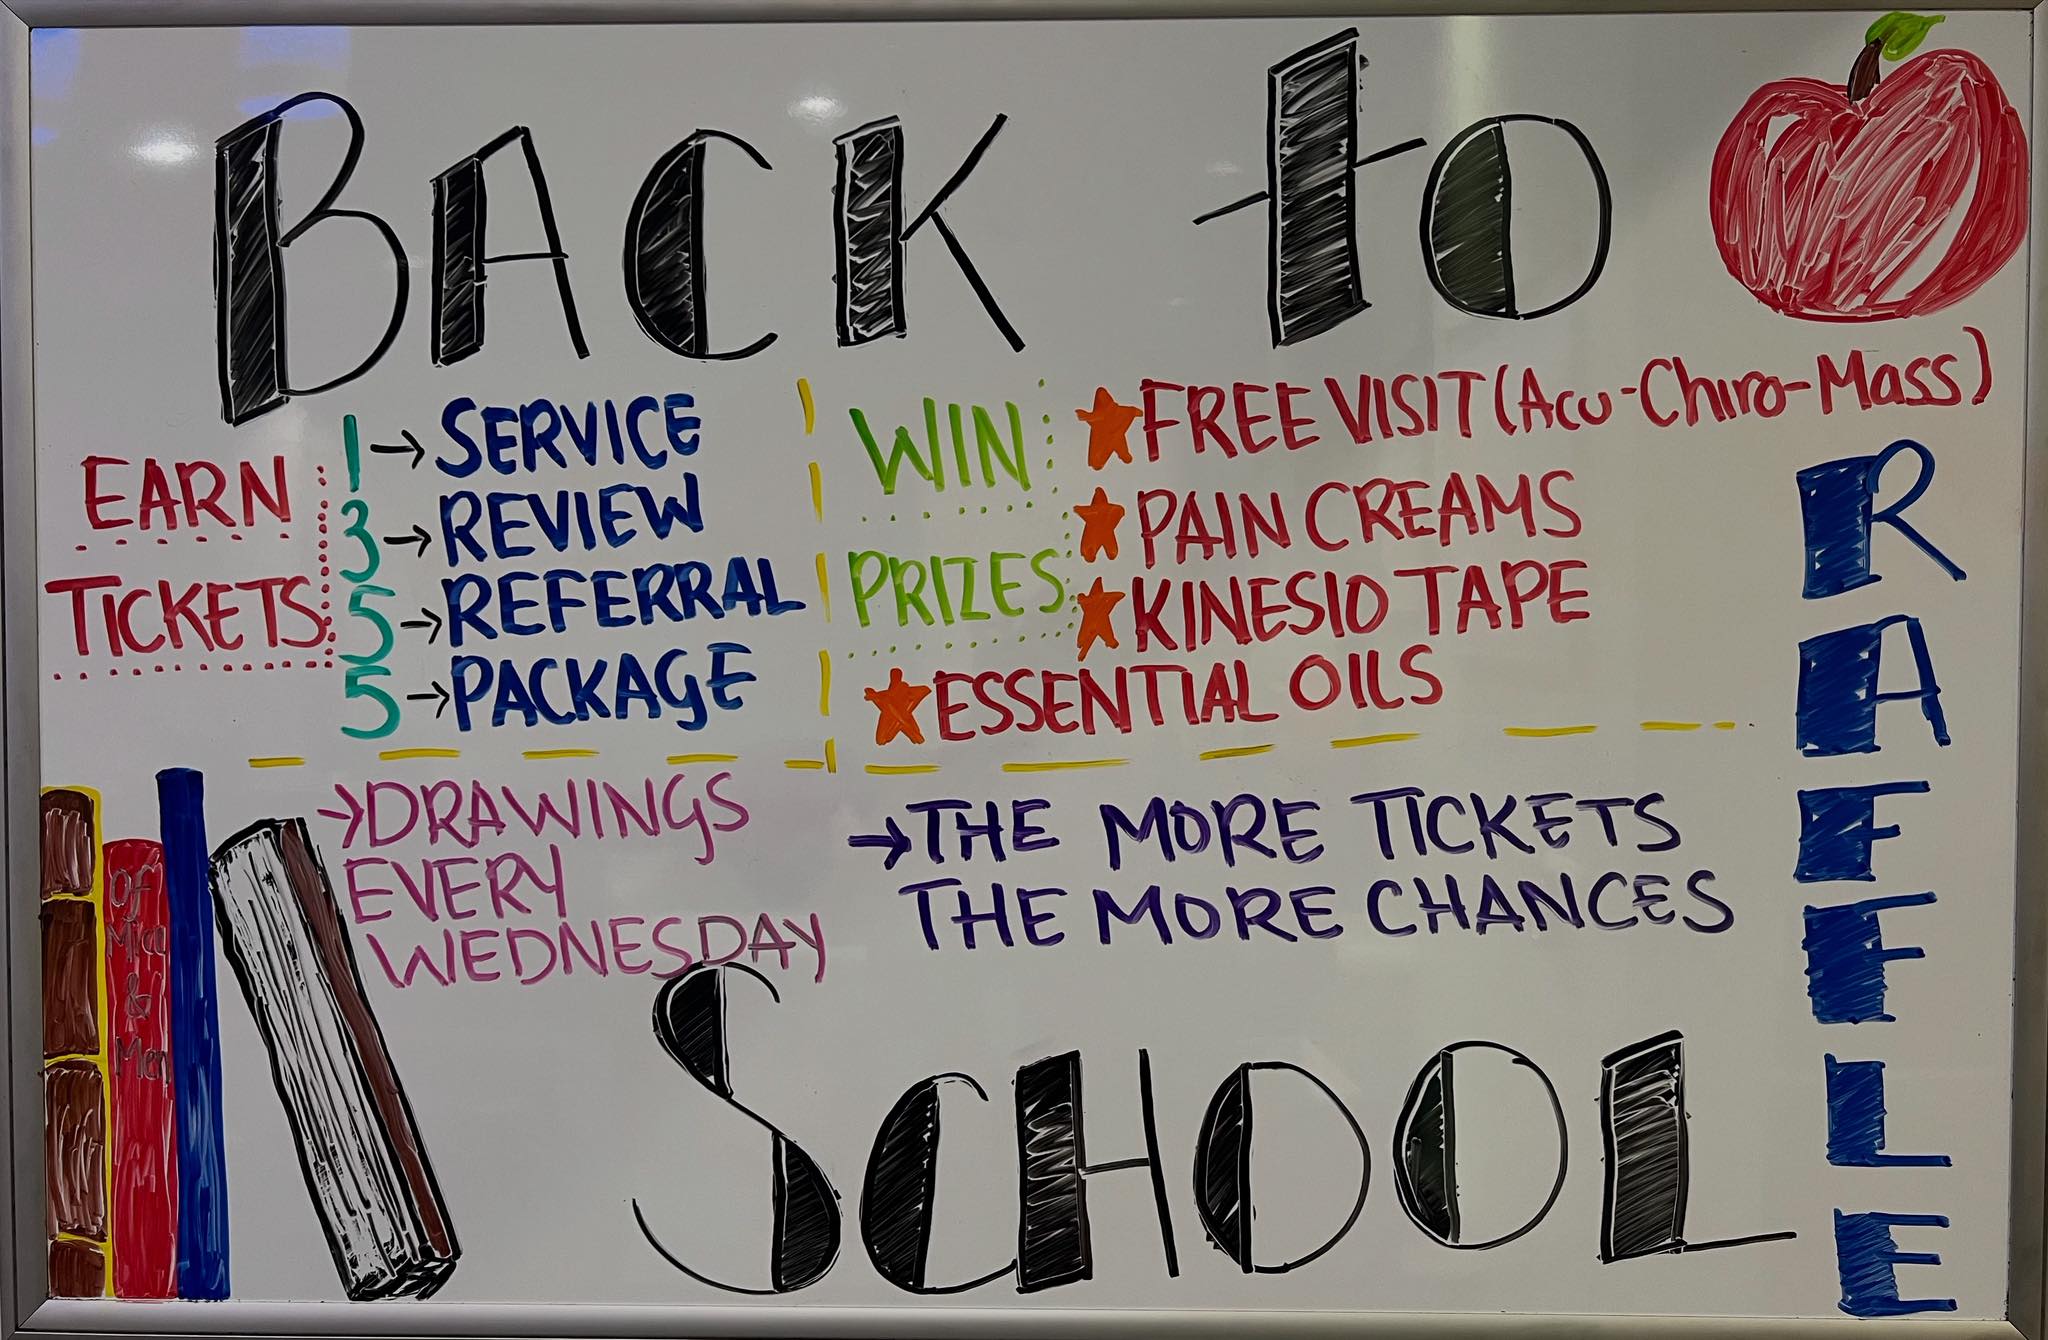 BACK to
EARN
TICKETS
1 → SERVICE
3 → REVIEW
5 → REFERRAL
5 → PACKAGE
WIN
PRIZES
★ FREE VISIT (Acu-Chiro-Mass)
★ PAIN CREAMS
★ KINESIO TAPE
★ ESSENTIAL OILS
RAFFLE
→ DRAWINGS
EVERY
WEDNESDAY
→ THE MORE TICKETS
THE MORE CHANCES
Of
Mice
&
Men
SCHOOL